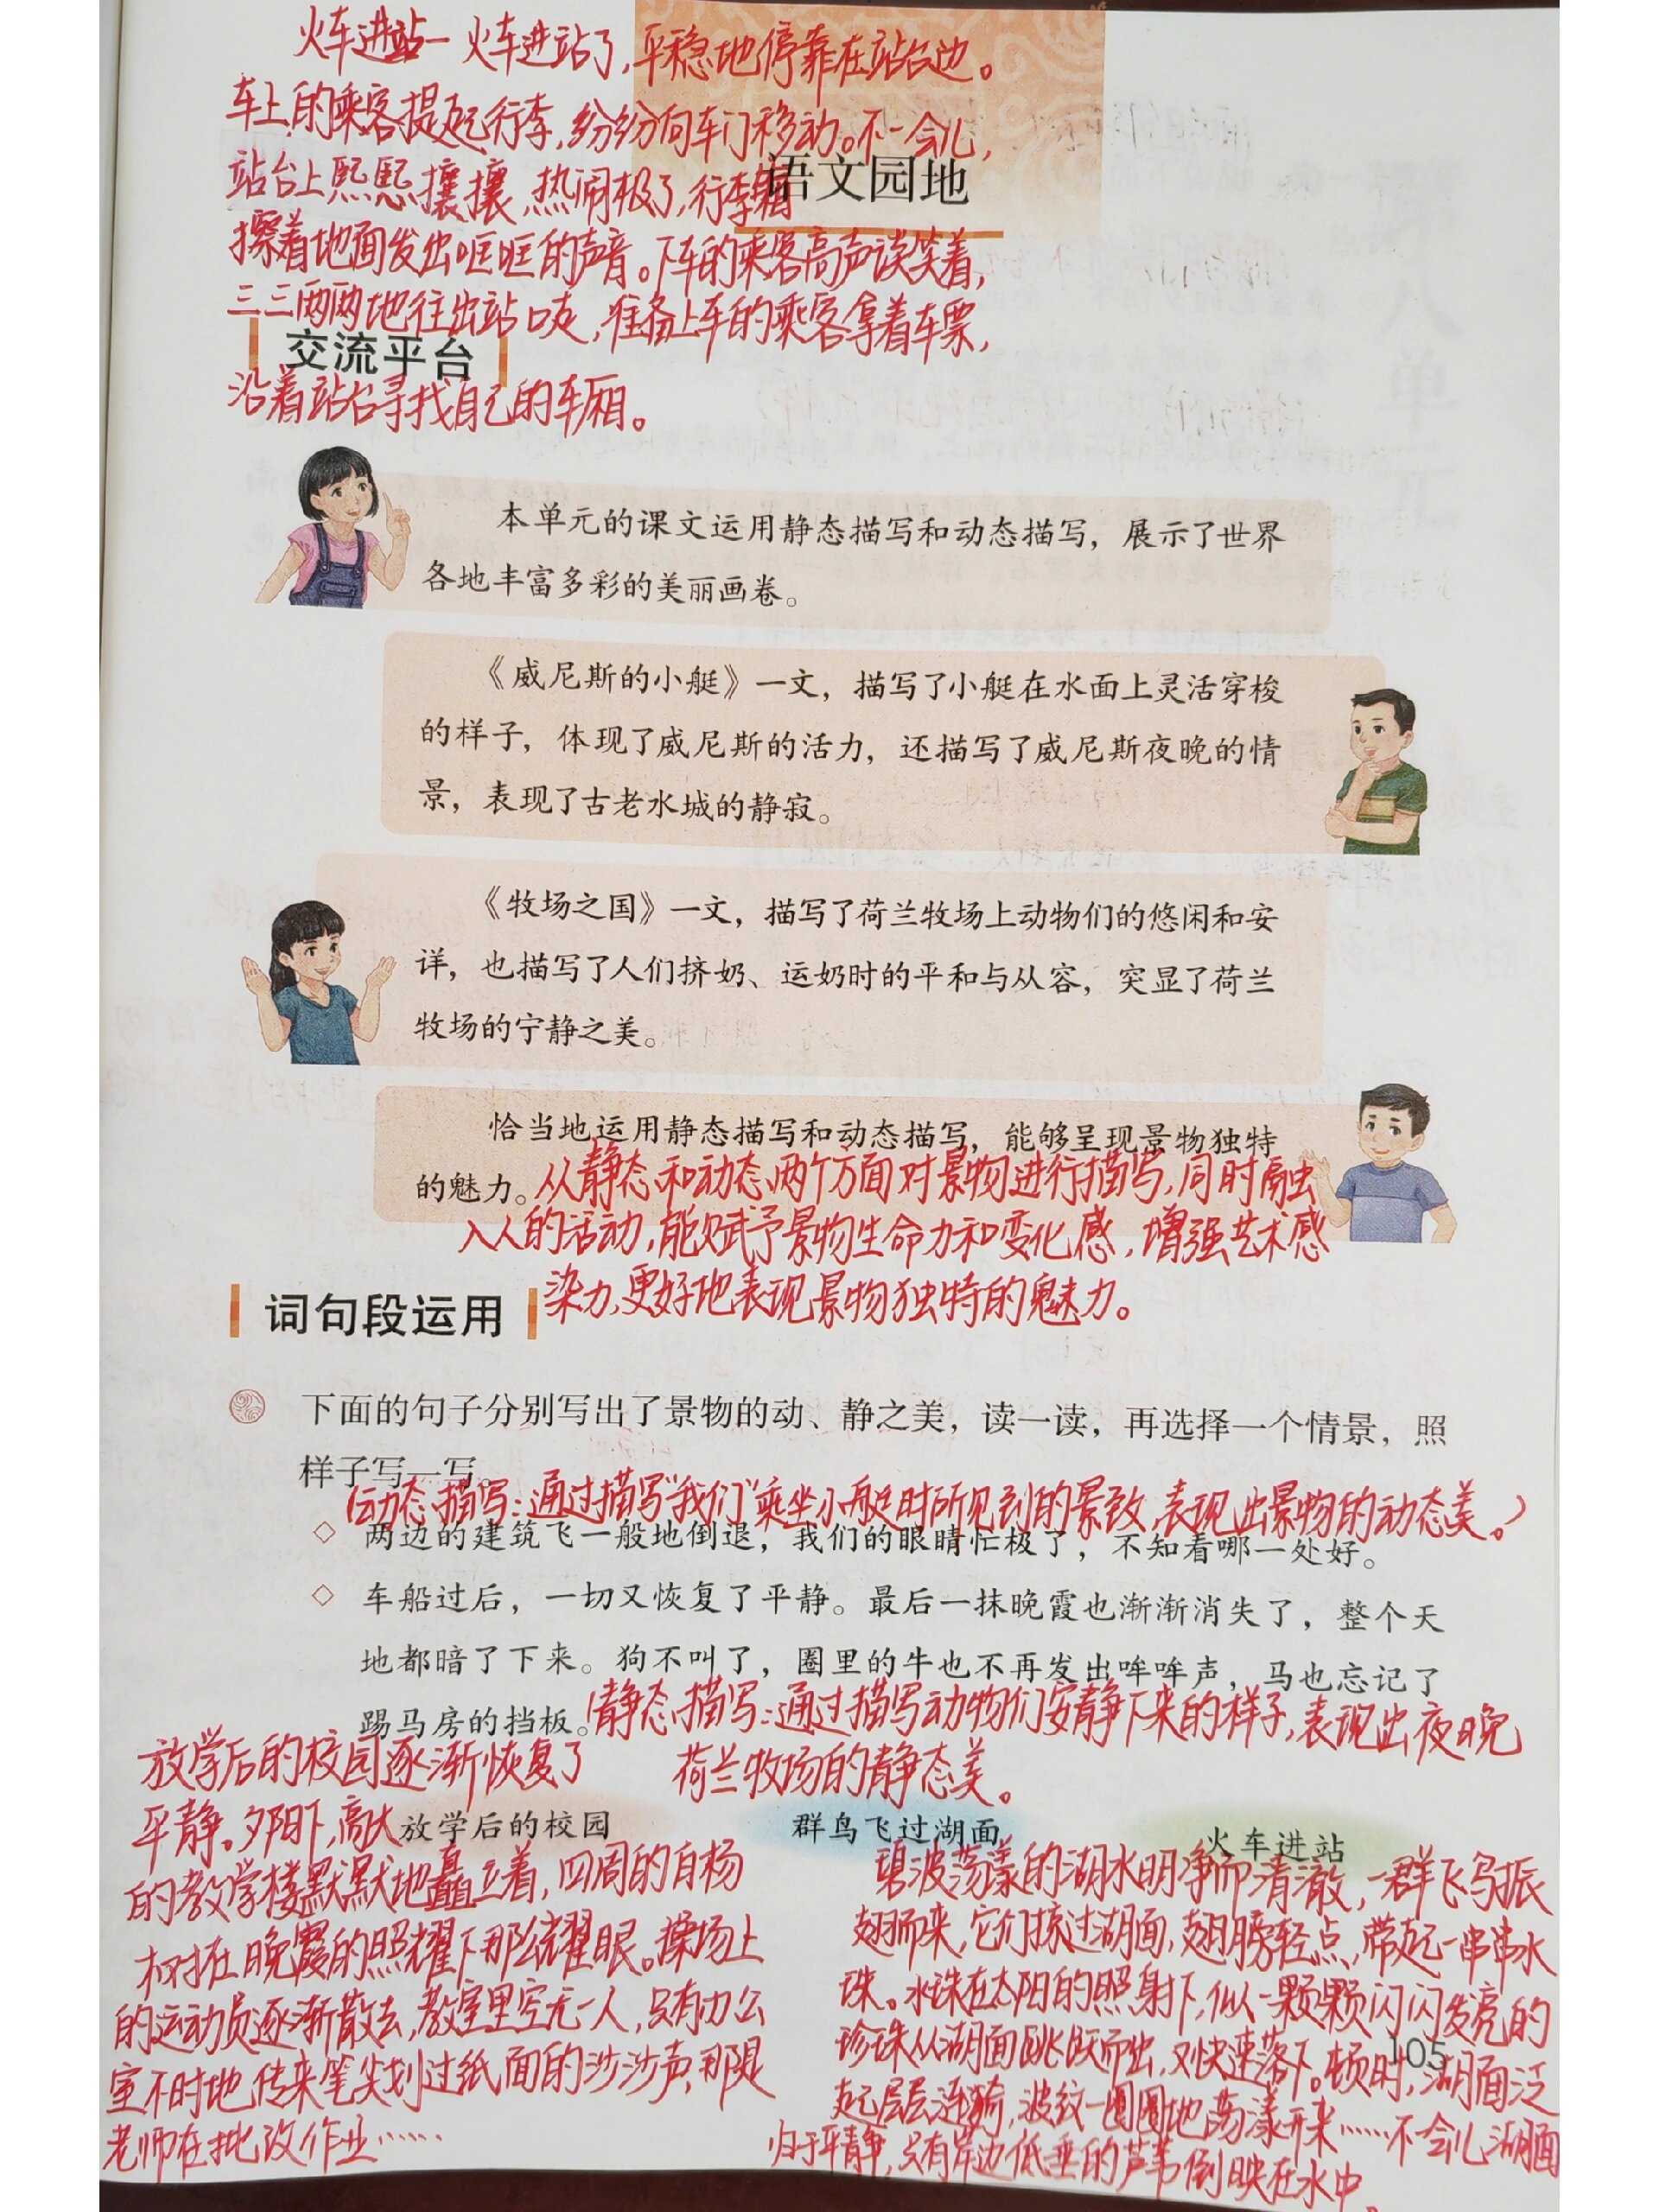 火车进站— 火车进站了,平稳地停靠在站台边。
车上的乘客提起行李,纷纷向车门移动。不一会儿,
站台上熙熙攘攘,热闹极了,行李箱
语文园地
擦着地面发出哐哐的声音。下车的乘客高声谈笑着,
三三两两地往出站口走,准备上车的乘客拿着车票,
交流平台
沿着站台寻找自己的车厢。
本单元的课文运用静态描写和动态描写，展示了世界
各地丰富多彩的美丽画卷。
《威尼斯的小艇》一文，描写了小艇在水面上灵活穿梭
的样子，体现了威尼斯的活力，还描写了威尼斯夜晚的情
景，表现了古老水城的静寂。
《牧场之国》一文，描写了荷兰牧场上动物们的悠闲和安
详，也描写了人们挤奶、运奶时的平和与从容，突显了荷兰
牧场的宁静之美。
恰当地运用静态描写和动态描写，能够呈现景物独特
的魅力。从静态和动态两个方面对景物进行描写,同时融
入人的活动,能赋予景物生命力和变化感,增强艺术感
染力,更好地表现景物独特的魅力。
词句段运用
下面的句子分别写出了景物的动、静之美，读一读，再选择一个情景，照
样子写一写。
(动态描写:通过描写“我们”乘坐小艇时所见到的景致,表现出景物的动态美。)
两边的建筑飞一般地倒退，我们的眼睛忙极了，不知看哪一处好。
车船过后，一切又恢复了平静。最后一抹晚霞也渐渐消失了，整个天
地都暗了下来。狗不叫了，圈里的牛也不再发出哞哞声，马也忘记了
踢马房的挡板。(静态描写:通过描写动物们安静下来的样子,表现出夜晚
荷兰牧场的静态美。
放学后的校园逐渐恢复了
平静。夕阳下,高大
放学后的校园
群鸟飞过湖面
火车进站
的教学楼默默地矗立着,四周的白杨
树在晚霞的照耀下那么耀眼。操场上
的运动员逐渐散去,教室里空无一人,只有办公
室不时地传来笔尖划过纸面的沙沙声,那是
老师在批改作业……
碧波荡漾的湖水明净而清澈,一群飞鸟振
翅而来,它们掠过湖面,翅膀轻点,带起一串串水
珠。水珠在太阳的照射下,似一颗颗闪闪发亮的
珍珠从湖面跳跃而出,又快速落下。顿时,湖面泛
起层层涟漪,波纹一圈圈地荡漾开来……不一会儿,湖面
归于平静,只有岸边低垂的芦苇倒映在水中。
105